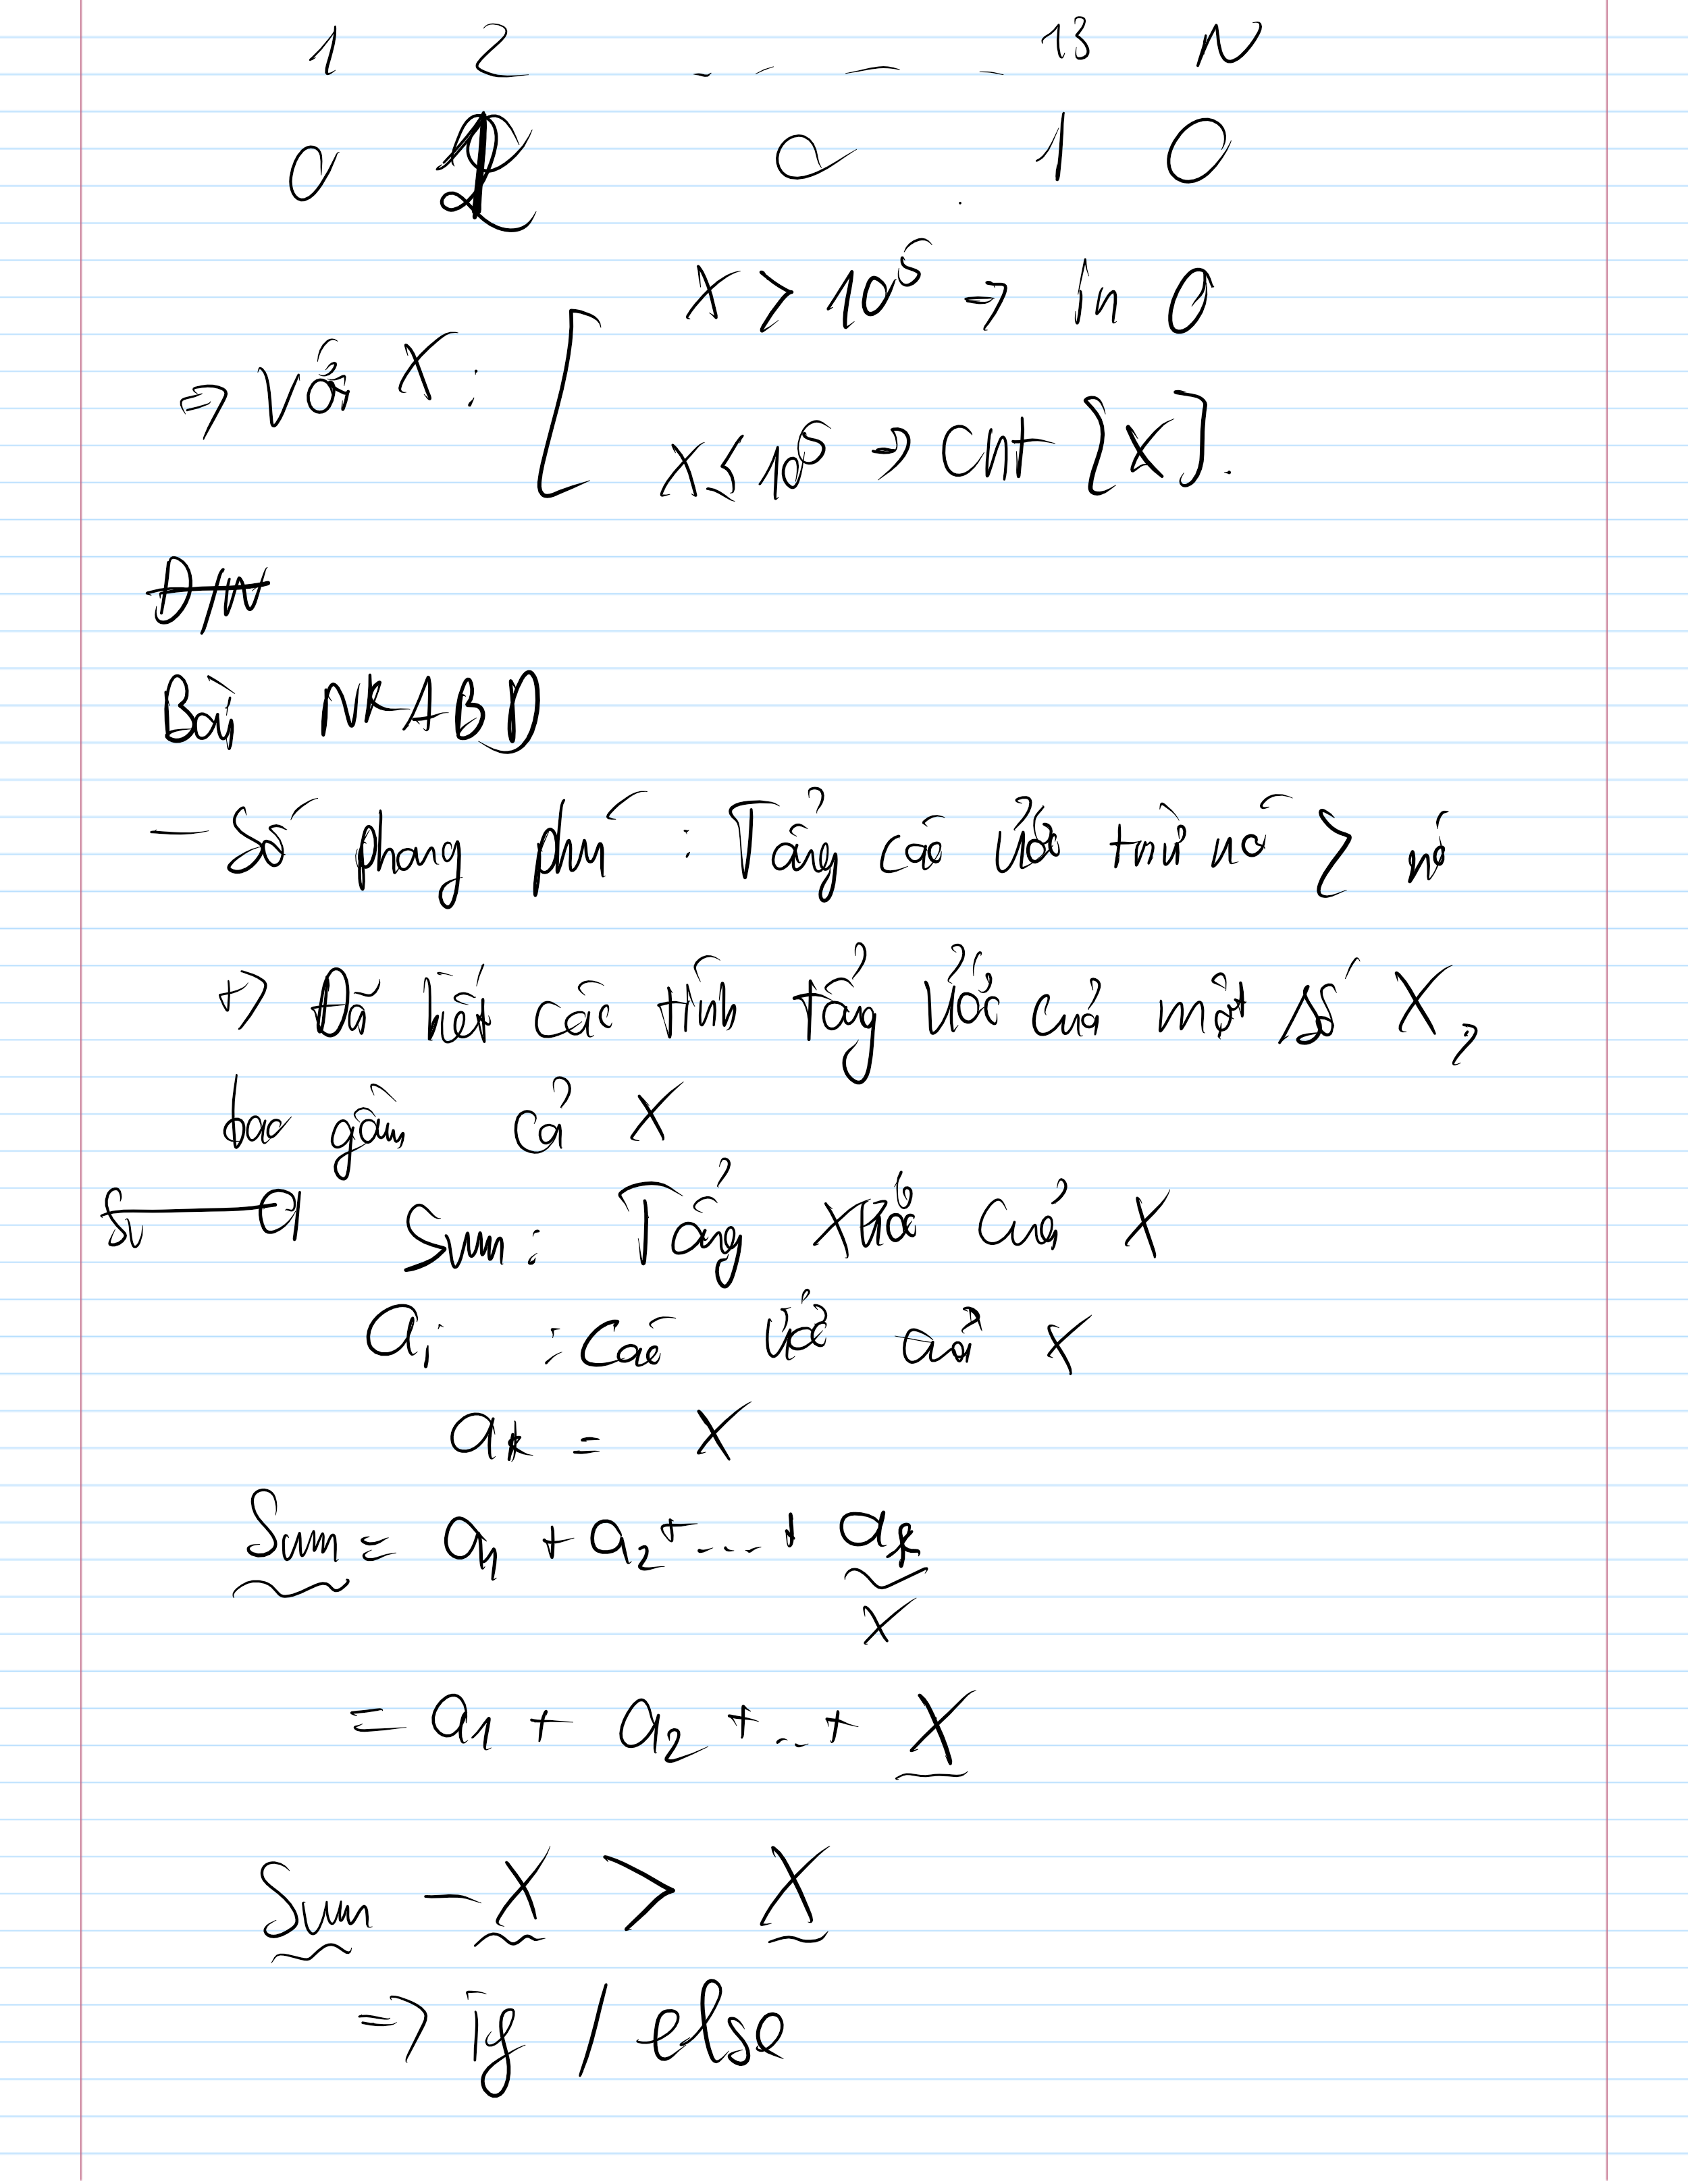 1 2 .. - — - 13 N
0 0 1 0
X > 10⁵ => in 0
=> Với X : [
X ≤ 10⁵ => Cnt [X].
Bài NKABD
- Số phong phú : Tổng các ước trừ nó > nó
+> Đã biết các tính tổng ước của một số X,
bao gồm cả X
Sum: Tổng ước của X
aᵢ : Các ước của X
aₖ = X
Sum = a₁ + a₂ + ... + aₖ
X
= a₁ + a₂ + ... + X
Sum - X > X
=> if / else